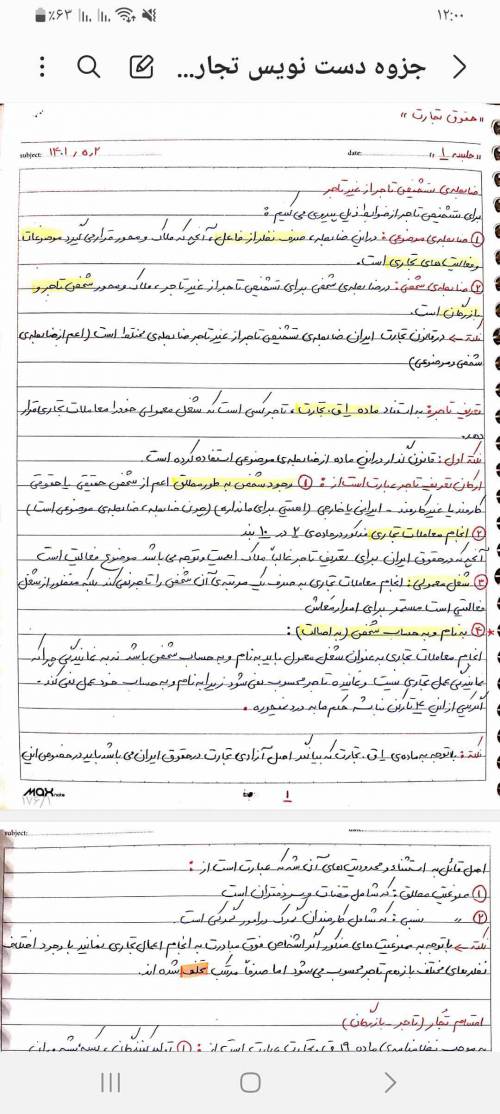 ۱۲:۰۰
٪۶۳
جزوه دست نویس تجار...
"حقوق تجارت"
"جلسه ۱"
date:
subject: ۱۴۰۱٫۵٫۲
ضابطه‌ی تشخیص تاجر از غیر تاجر
برای تشخیص تاجر از ضوابط ذیل پیروی می کنیم:
① ضابطه‌ی موضوعی: در این ضابطه، صرف نظر از فاعل، آنچه که ملاک و محور قرار می گیرد موضوعات
و فعالیت های تجاری است.
② ضابطه‌ی شخصی: در ضابطه‌ی شخصی برای تشخیص تاجر از غیر تاجر، ملاک و محور شخص تاجر و
بازرگان است.
نکته ← در قانون تجارت ایران ضابطه‌ی تشخیص تاجر از غیر تاجر ضابطه‌ی مختلط است (اعم از ضابطه‌ی
شخصی و موضوعی)
تعریف تاجر: به استناد ماده ۱ ق. تجارت، تاجر کسی است که شغل معمولی خود را معاملات تجاری قرار
دهد.
نکته اول: قانون گذار در این ماده از ضابطه‌ی موضوعی استفاده کرده است.
ارکان تعریف تاجر عبارت است از: ① وجود شخص به طور مطلق اعم از شخص حقیقی یا حقوقی
کارمند یا غیر کارمند - ایرانی یا خارجی (اهمیتی برای ما ندارد) (چون ضابطه، ضابطه‌ی موضوعی است)
② انجام معاملات تجاری مذکور در ماده‌ی ۲ در ۱۰ بند
آنچه که در حقوق ایران برای تعریف تاجر غالباً ملاک اهمیت و توجه می باشد موضوع فعالیت است
③ شغل معمولی: انجام معاملات تجاری به صرف یک مرتبه‌ی آن شخص را تاجر نمی کند بلکه منظور از شغل
فعالیتی است مستمر برای امرار معاش
* ④ به نام و به حساب شخص (به اصالت):
انجام معاملات تجاری به عنوان شغل معمول باید به نام و به حساب شخص باشد نه به نمایندگی چرا که
نمایندگی عمل تجاری نیست و نماینده تاجر محسوب نمی شود زیرا به نام و به حساب خود عمل نمی کند.
اگر کسی از این ۴ تا رکن نباشه حکم ما به درد نمیخوره.
نکته: با توجه به ماده‌ی ۱ ق. تجارت که بیانگر اصل آزادی تجارت در حقوق ایران می باشد باید در خصوص این
MAX note
۱
subject:
اصل قائل به استثناء و محدودیت های آن شد که عبارت است از:
① ممنوعیت مطلق: که شامل قضات و سردفتران است
② " نسبی: که شامل کارمندان گمرک در امور گمرکی است.
نکته ← با توجه به ممنوعیت های مذکور اگر اشخاص فوق مبادرت به انجام اعمال تجاری نمایند با وجود اختلاف
نظرهای مختلف باز هم تاجر محسوب می شود اما صرفاً مرتکب تخلف شده اند.
اقسام تجار (تاجر - بازرگان)
به موجب نظامنامه‌ی ماده ۱۹ ق. تجارت عبارت است از: ①